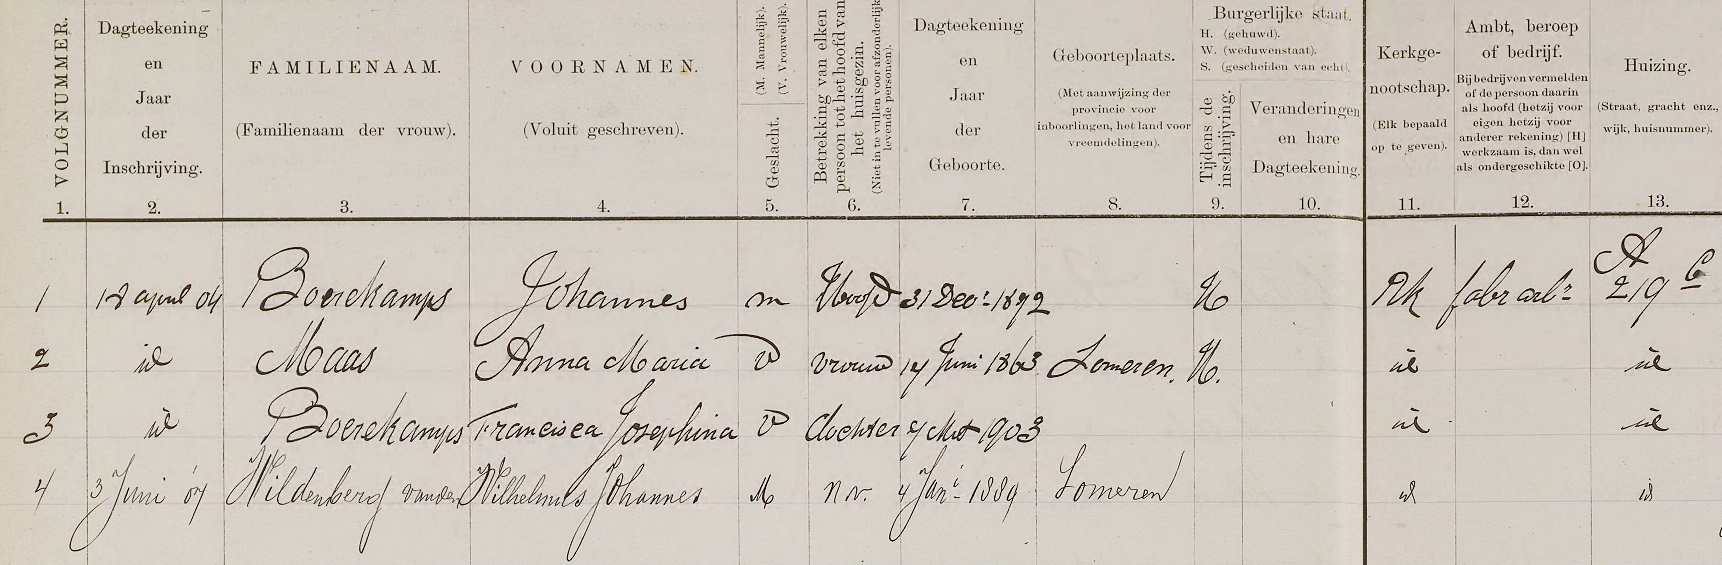 VOLGNUMMER.
1.
Dagteekening
en
Jaar
der
Inschrijving.
2.
FAMILIENAAM.
(Familienaam der vrouw).
3.
VOORNAMEN.
(Voluit geschreven).
4.
(M. Mannelijk).
(V. Vrouwelijk).
Geslacht.
5.
Betrekking van elken
persoon tot het hoofd van
het huisgezin.
(Niet in te vullen voor afzonderlijk
levende personen).
6.
Dagteekening
en
Jaar
der
Geboorte.
7.
Geboorteplaats.
(Met aanwijzing der
provincie voor
inboorlingen, het land voor
vreemdelingen).
8.
Burgerlijke staat.
H. (gehuwd).
W. (weduwenstaat).
S. (gescheiden van echt).
Tijdens de
inschrijving.
9.
Veranderingen
en hare
Dagteekening.
10.
Kerkge-
nootschap.
(Elk bepaald
op te geven).
11.
Ambt, beroep
of bedrijf.
Bij bedrijven vermelden
of de persoon daarin
als hoofd (hetzij voor
eigen hetzij voor
anderer rekening) [H]
werkzaam is, dan wel
als ondergeschikte [O].
12.
Huizing.
(Straat, gracht enz.,
wijk, huisnummer).
13.
1 18 april 04 Boerekamps Johannes m Hoofd 31 Decr 1872 H RK fabr arbr A 219 c
2 id Maas Anna Maria v vrouw 14 Juni 1863 Someren. H. id id
3 id Boerekamps Francisca Josephina v dochter Mrt 1903 id id
4 3 Juni 07 Wildenberg van den Wilhelmus Johannes M n.v. 4 Jani 1889 Someren id id